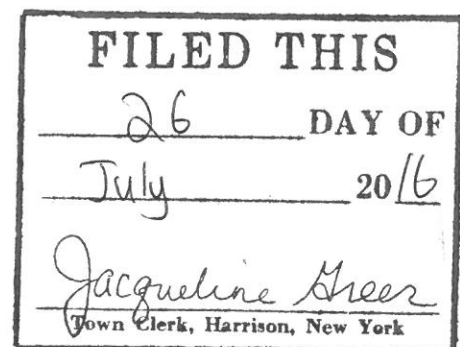 FILED THIS
26 DAY OF
July 2016
Jacqueline Greer
Town Clerk, Harrison, New York